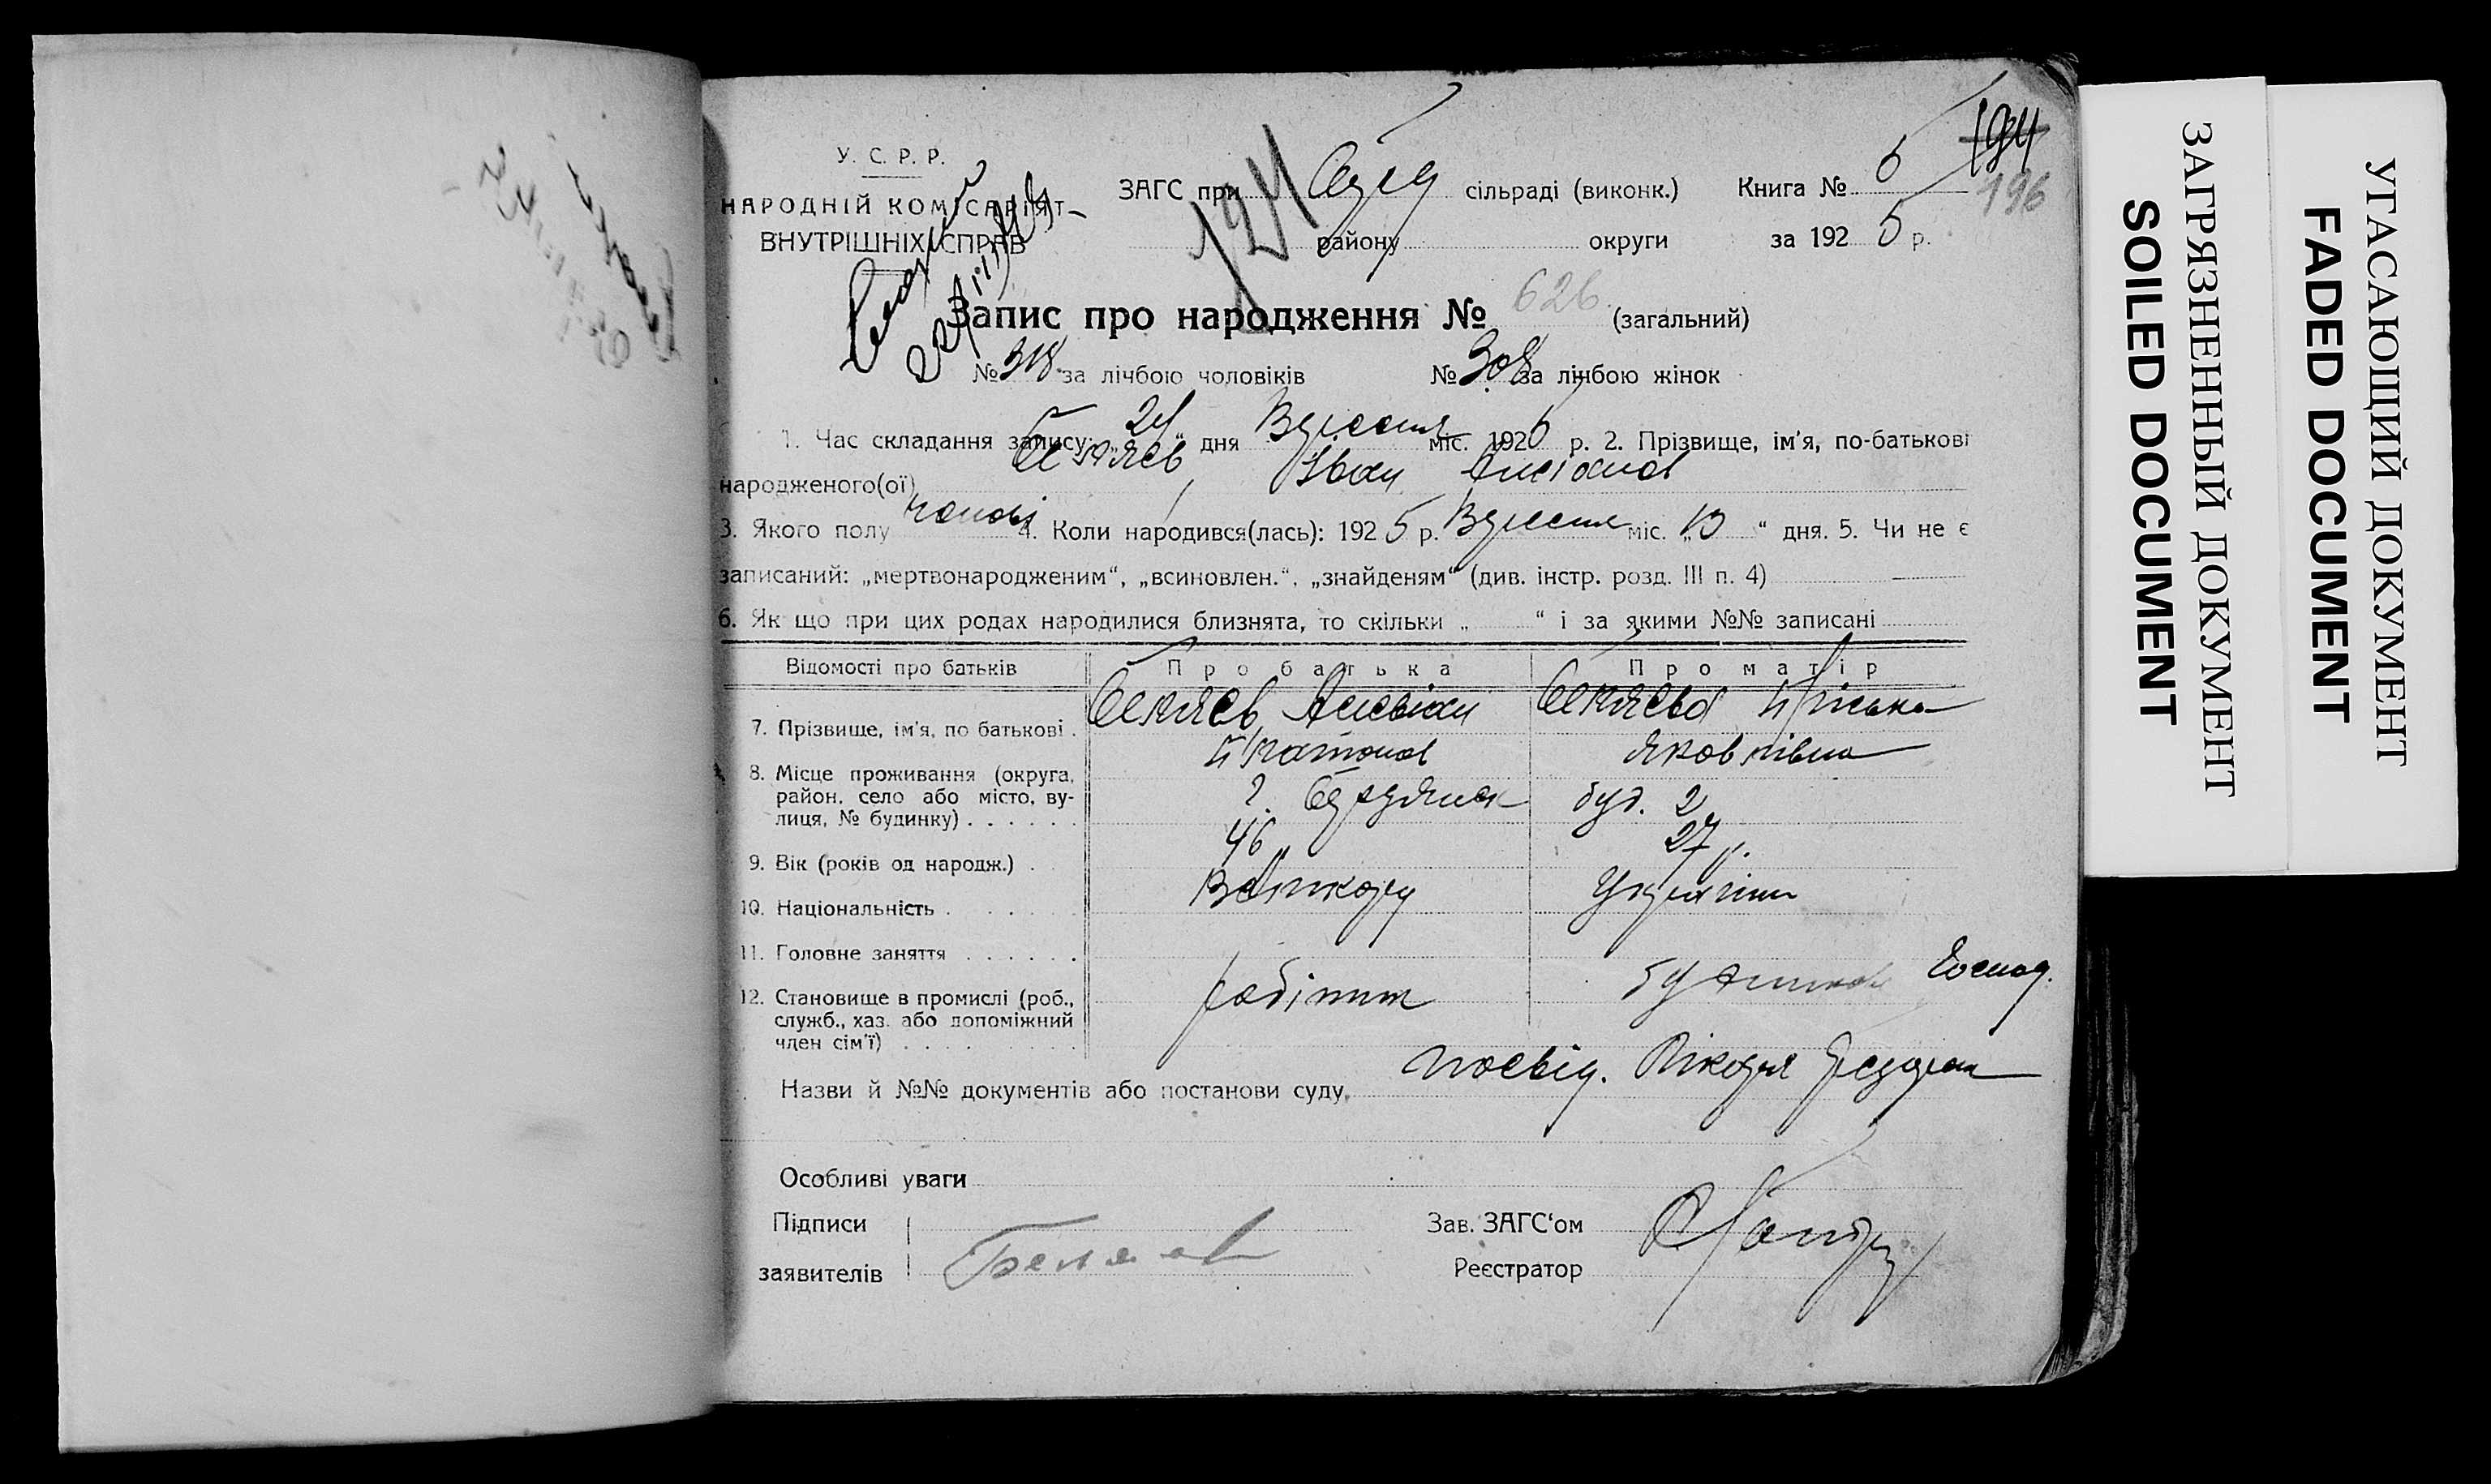 У. С. Р. Р.
НАРОДНІЙ КОМІСАРІЯТ
ВНУТРІШНІХ СПРАВ
124
ЗАГС при сільраді (виконк.)
району округи
Книга № 5
за 1925 р.
194
196
Запис про народження № 626 (загальний)
№ 318 за лічбою чоловіків № 308 за лічбою жінок
1. Час складання запису: „24“ дня Вересня міс. 1925 р. 2. Прізвище, ім'я, по-батькові
народженого(ої) Бєляєв Іван
3. Якого полу чолов 4. Коли народився(лась): 1925 р. Вересня міс. „13“ дня. 5. Чи не є
записаний: „мертвонародженим“, „всиновлен.“, „знайденям“ (див. інстр. розд. III п. 4)
6. Як що при цих родах народилися близнята, то скільки „ “ і за якими №№ записані
Відомості про батьків Про батька Про матір
7. Прізвище, ім'я, по батькові . Бєляєв Бєляєва
Яковлівна
8. Місце проживання (округа,
район, село або місто, ву-
лиця, № будинку) . . . . . . буд. 2
9. Вік (років од народж.) . 46 27 р.
10. Національність . . . . Великор Українка
11. Головне заняття . . . . . .
12. Становище в промислі (роб.,
служб., хаз. або допоміжний
член сім'ї) . . . . . . робітник Господ.
Назви й №№ документів або постанови суду. посвід. Лікаря
Особливі уваги
Підписи
заявителів Беляев
Зав. ЗАГС‘ом
Реєстратор
ЗАГРЯЗНЕННЫЙ ДОКУМЕНТ
SOILED DOCUMENT
УГАСАЮЩИЙ ДОКУМЕНТ
FADED DOCUMENT